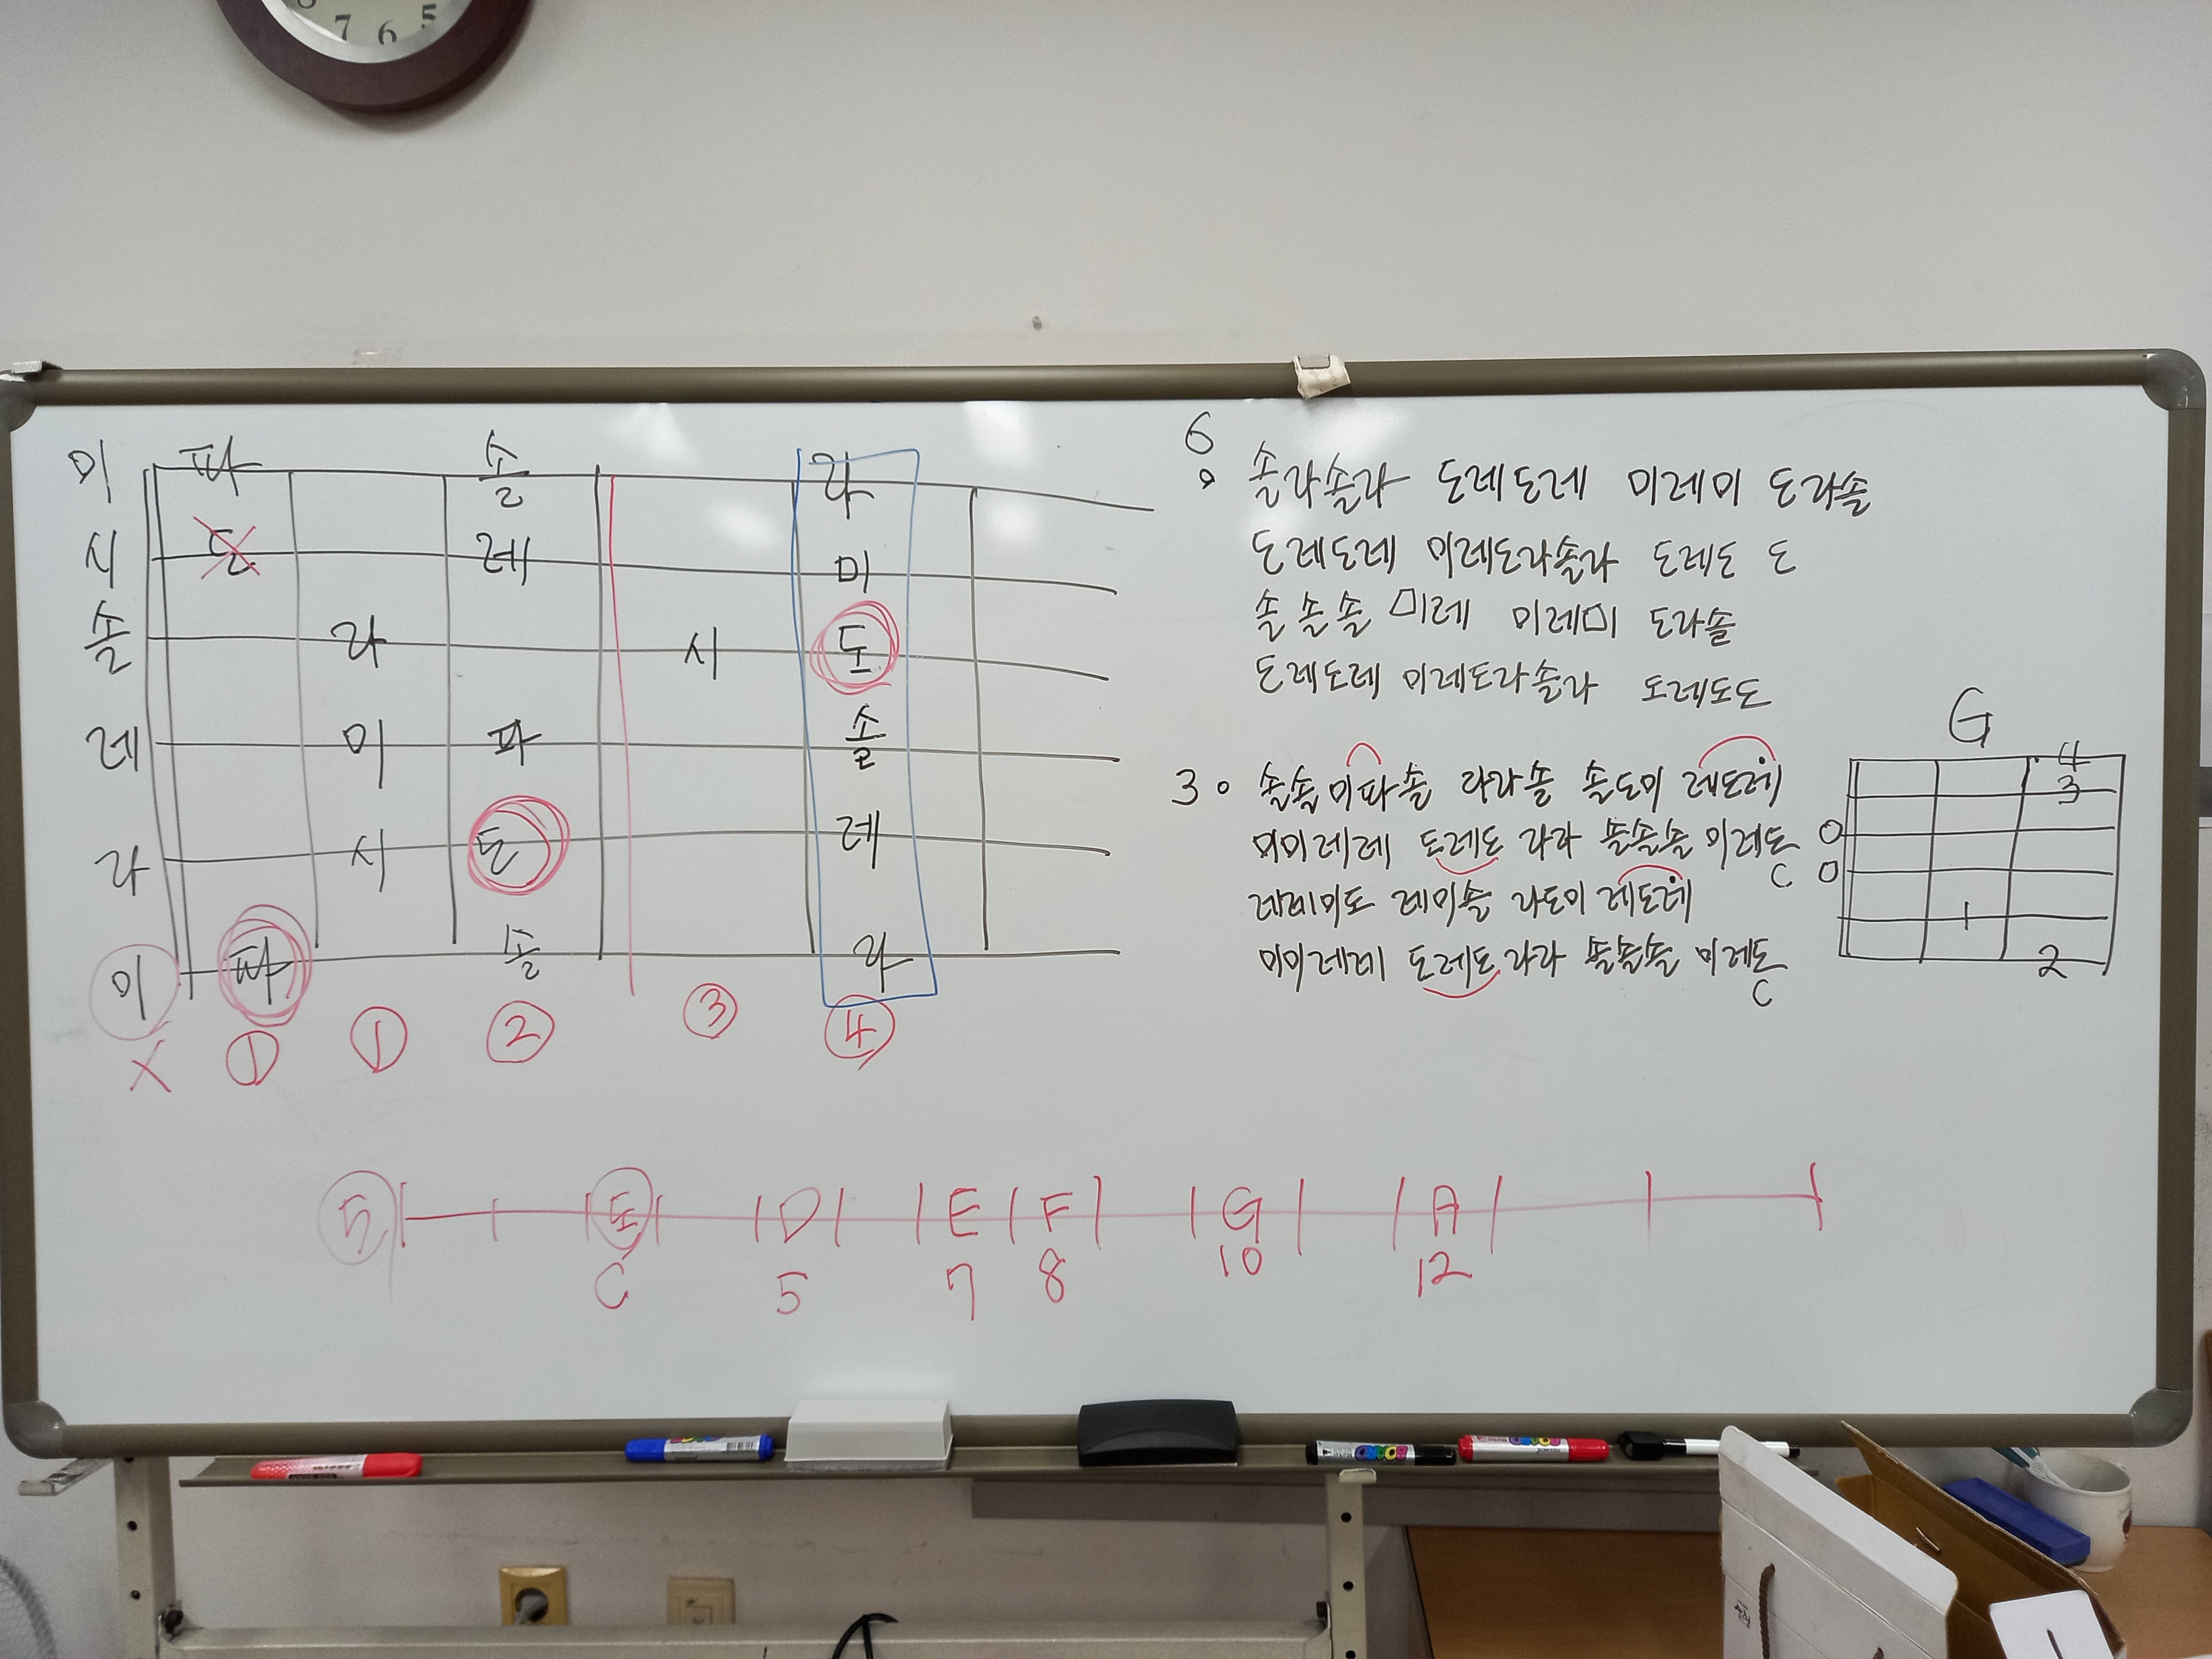 7 6 5
미 파 솔 라
시 도 레 미
솔 라 시 도
레 미 파 솔
라 시 도 레
미 파 솔 라
X ① ① ② ③ ④
6
솔라솔라 도레도레 미레미 도라솔
도레도레 미레도라솔라 도레도 도
솔솔솔 미레 미레미 도라솔
도레도레 미레도라솔라 도레도도
3 솔솔미파솔 라라솔 솔도미 레도레
미미레레 도레도 라라 솔솔솔 미레도
C
레레미도 레미솔 라도미 레도레
미미레레 도레도 라라 솔솔솔 미레도
C
G
4
3
O
O
1
2
5 도 D E F G A
C 5 7 8 10 12